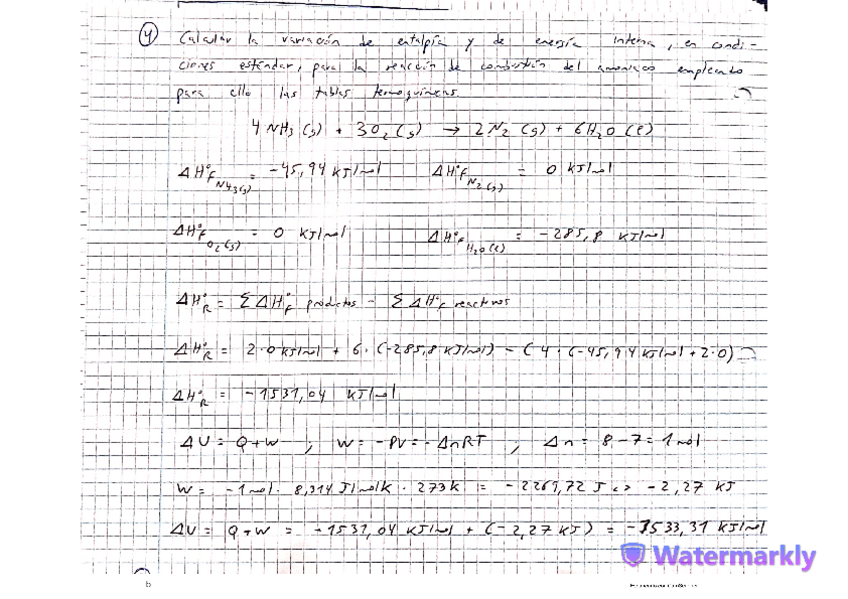 4 Calcular la variación de entalpía y de energía interna, en condi-
ciones estándar, para la reacción de combustión del amoniaco empleando
para ello las tablas termoquímicas.
4 NH3 (g) + 3O2 (g) → 2N2 (g) + 6H2O (l)
ΔH°f NH3(g) = -45,94 kJ/mol ΔH°f N2(g) = 0 kJ/mol
ΔH°f O2(g) = 0 kJ/mol ΔH°f H2O(l) = -285,8 kJ/mol
ΔH°R = ΣΔH°f productos - ΣΔH°f reactivos
ΔH°R = 2·0 kJ/mol + 6·(-285,8 kJ/mol) - (4·(-45,94 kJ/mol + 2·0)
ΔH°R = -1531,04 kJ/mol
ΔU = Q+W ; W = -PV = -ΔnRT ; Δn = 8-7 = 1 mol
W = -1 mol · 8,314 J/molK · 273K = -2269,72 J <> -2,27 KJ
ΔU = Q+W = -1531,04 kJ/mol + (-2,27 KJ) = -1533,31 kJ/mol
Watermarkly